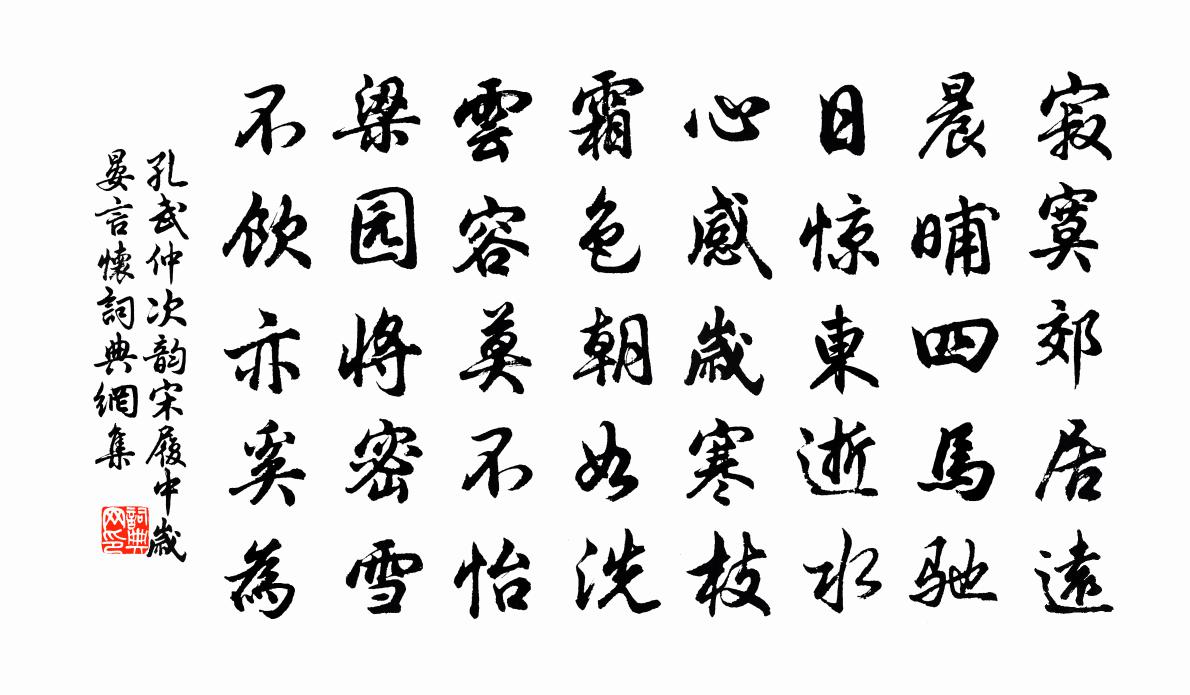 寂寞郊居遠
晨晡四馬馳
日惊東逝水
心感歲寒枝
霜色朝如洗
雲容莫不怡
梁园将密雪
不飲亦奚為
孔武仲次韵宋履中歲
晏言懷詞典網集
詞典
网印